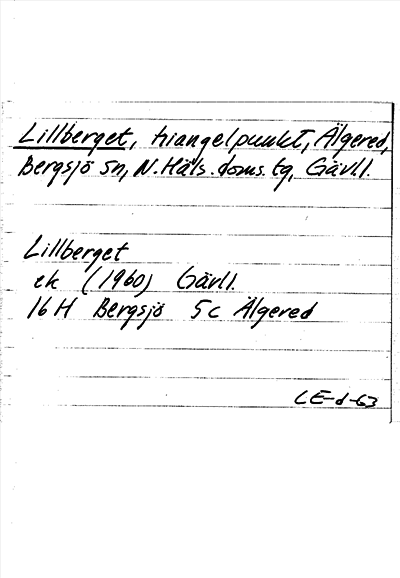 Lillberget, triangelpunkt, Älgered,
Bergsjö sn, N. Häls. doms. tg, Gävl.l.
Lillberget
ek (1960) Gävl.l.
16H Bergsjö 5c Älgered
LE-d-63